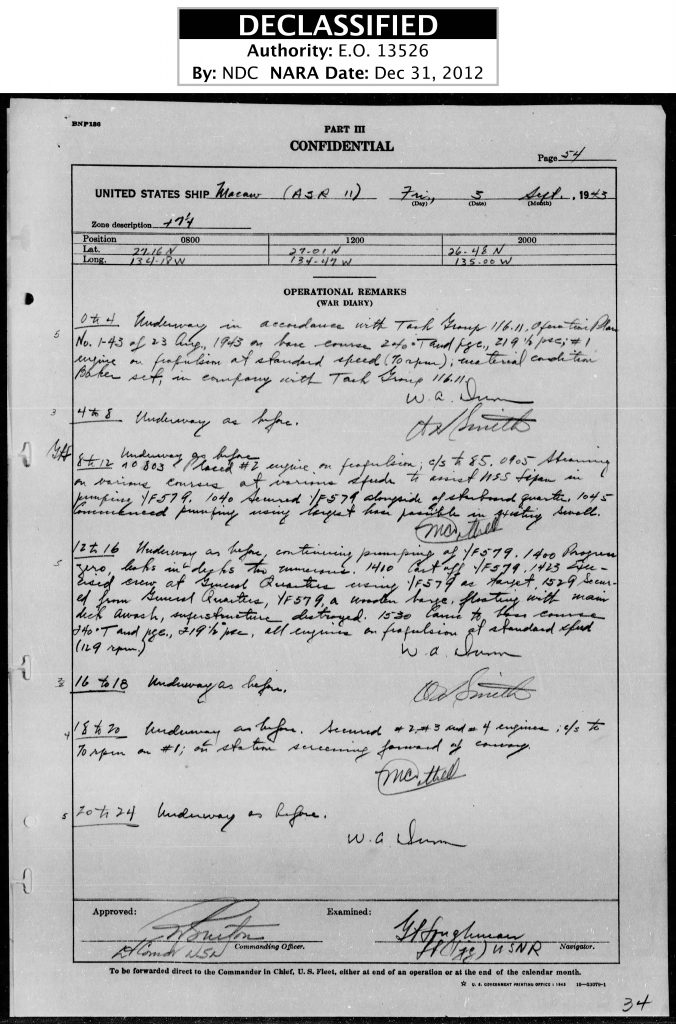 DECLASSIFIED
Authority: E.O. 13526
By: NDC NARA Date: Dec 31, 2012
BNP186
PART III
CONFIDENTIAL
Page 54
UNITED STATES SHIP Macaw (ASR 11) Fri., 3 Sept., 1943
(Day) (Date) (Month)
Zone description +74
Position 0800 1200 2000
Lat. 27-16 N 27-01 N 26-48 N
Long. 134-18 W 134-47 W 135-00 W
OPERATIONAL REMARKS
(WAR DIARY)
0 to 4 Underway in accordance with Task Group 116.11, Operation Plan
No. 1-43 of 23 Aug., 1943 on base course 240°T and pgc., 219½ psc; #1
engine on propulsion at standard speed (70 rpm); material condition
Baker set, in company with Task Group 116.11.
W. A. Dunn
4 to 8 Underway as before.
Smith
8 to 12 Underway as before
0803 Placed #2 engine on propulsion; c/s to 85. 0905 Steaming
on various courses at various speeds to assist USS in
pumping YF579. 1040 Secured YF579 alongside of starboard quarter. 1045
Commenced pumping using largest hose possible in existing swell.
12 to 16 Underway as before, continuing pumping of YF579. 1400 Progress
zero, leaks in depths too numerous. 1410 Cast off YF579. 1423 Exer-
cised crew at General Quarters using YF579 as target. 1529 Secur-
ed from General Quarters, YF579, a wooden barge, floating with main
deck awash, superstructure destroyed. 1530 Came to base course
240°T and pgc., 219½° psc, all engines on propulsion at standard speed
(129 rpm.)
W. A. Dunn
16 to 18 Underway as before.
Smith
18 to 20 Underway as before. Secured #2, #3 and #4 engines; c/s to
70 rpm on #1; on station screening forward of convoy.
20 to 24 Underway as before.
W. A. Dunn
Approved: Examined:
USN Commanding Officer. Lt (jg) USNR Navigator.
To be forwarded direct to the Commander in Chief, U. S. Fleet, either at end of an operation or at the end of the calendar month.
☆ U. S. GOVERNMENT PRINTING OFFICE : 1943
34